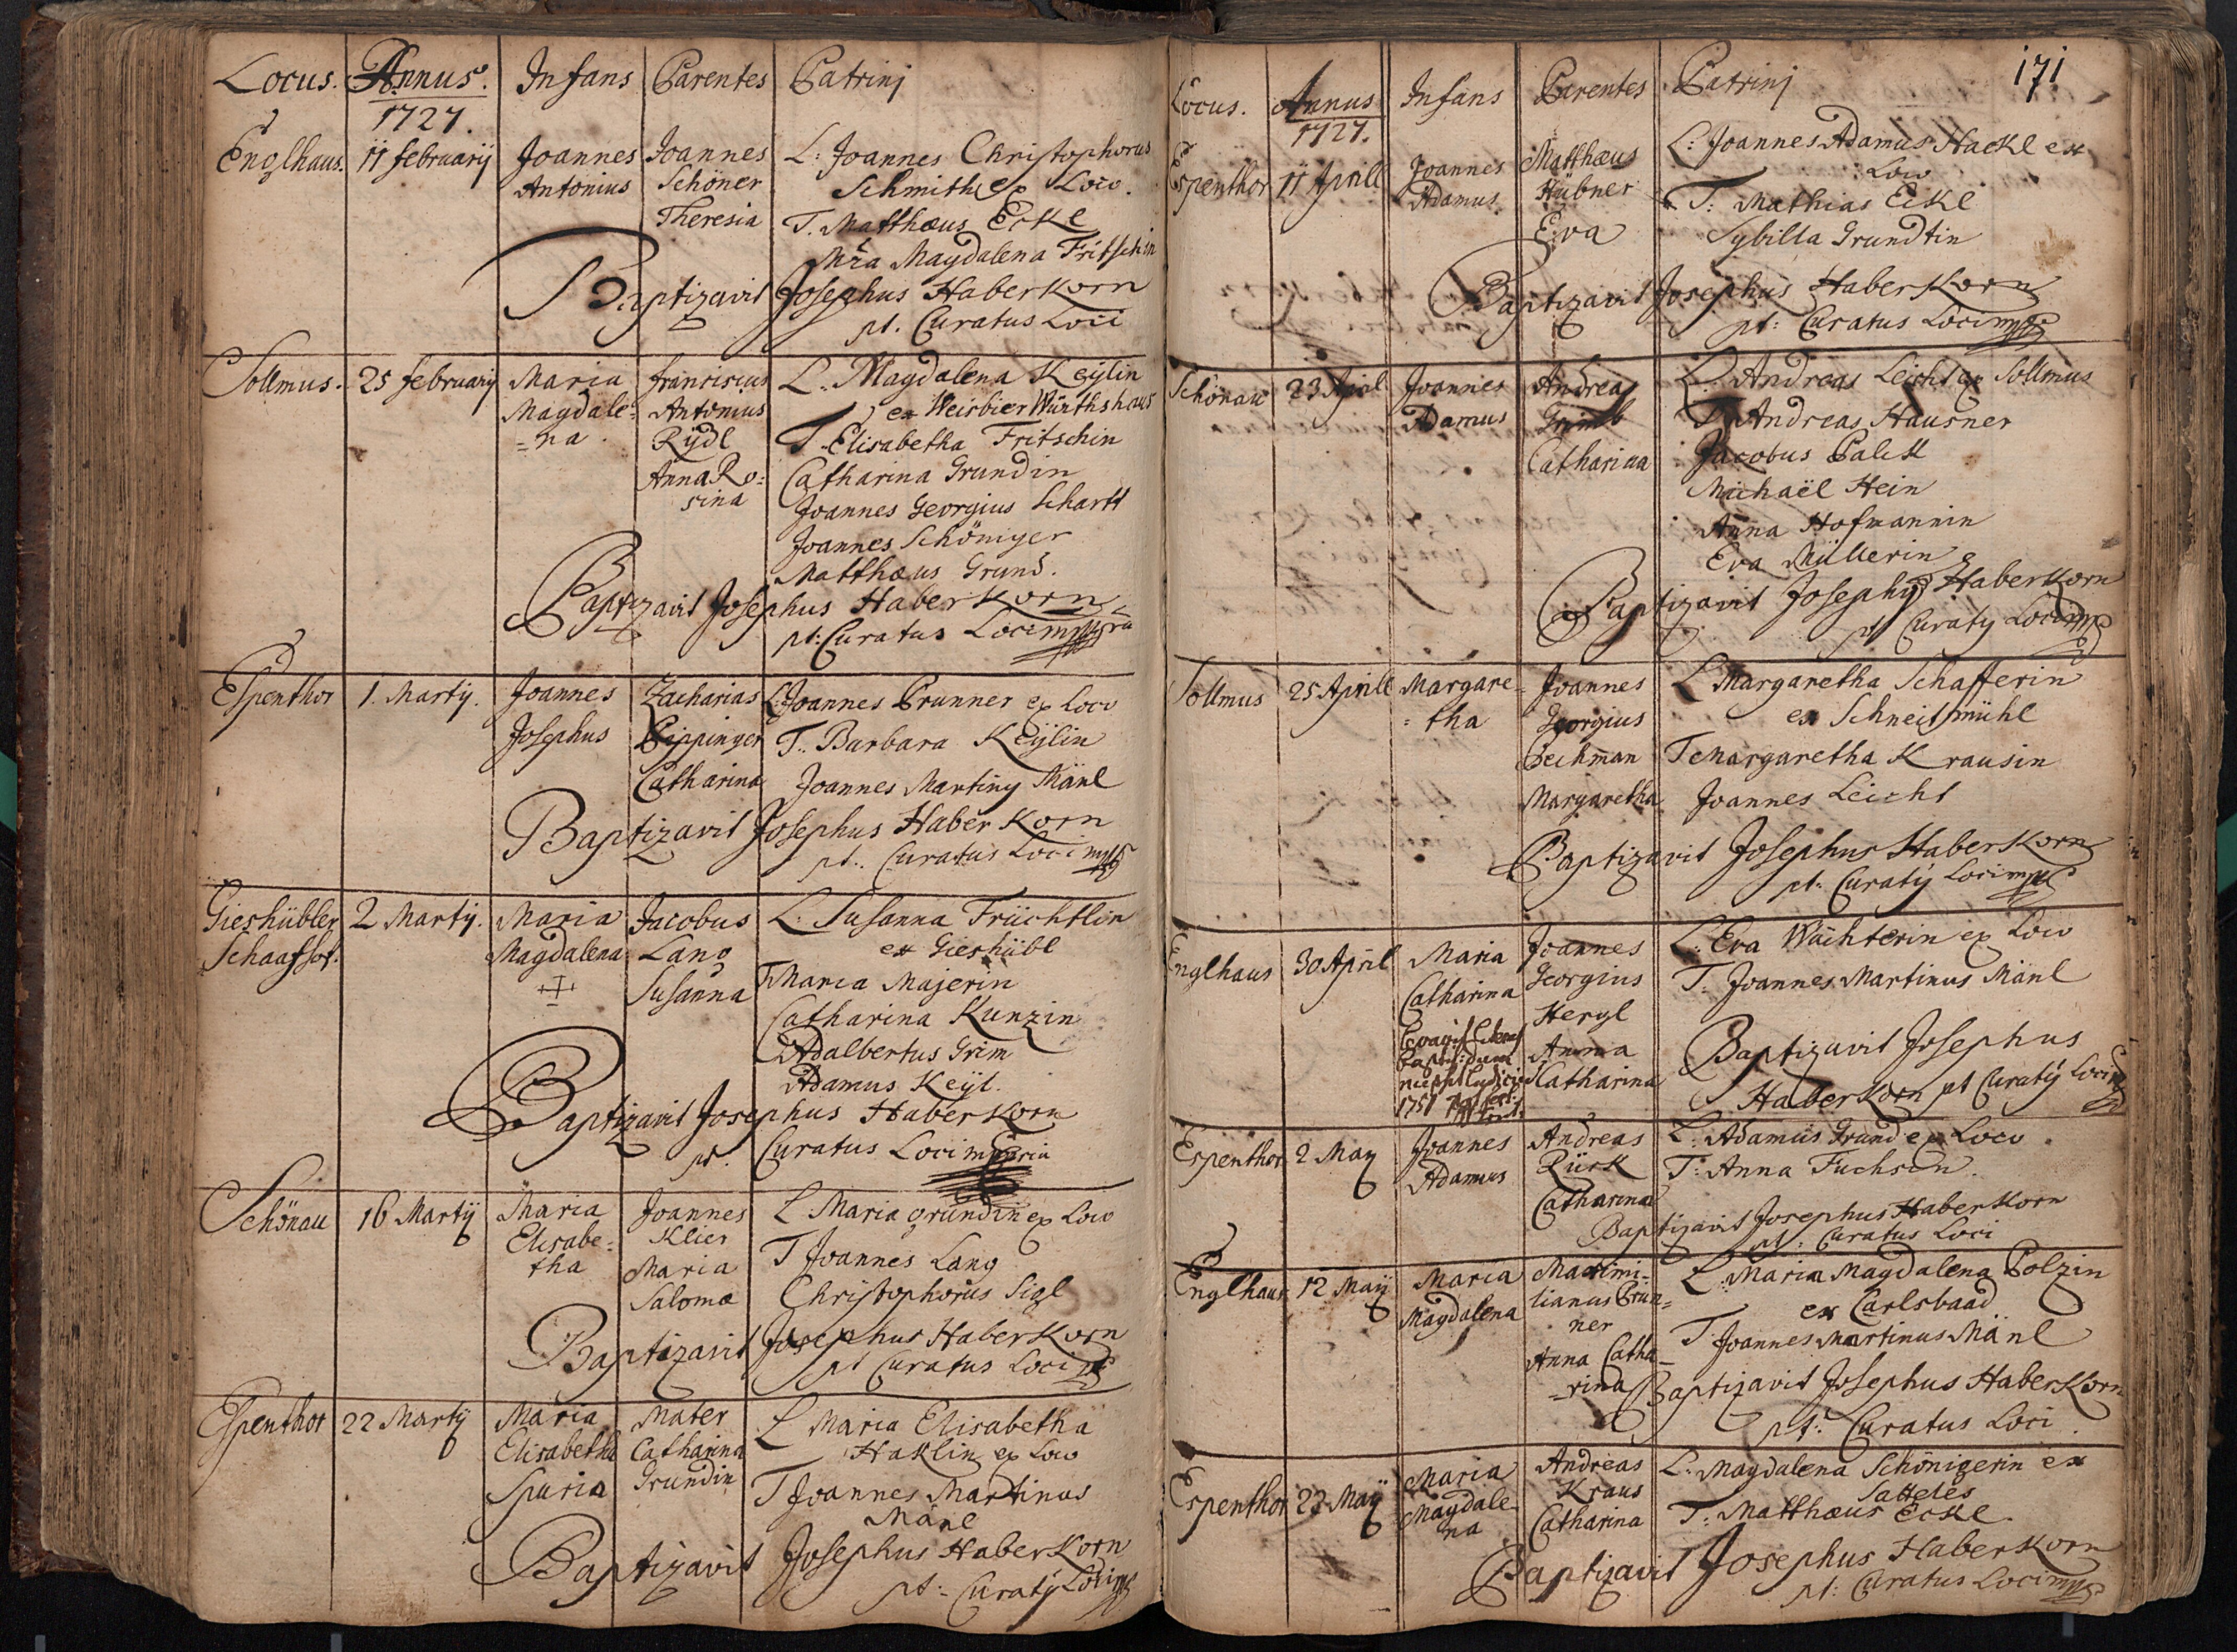 Locus. Annus. Infans Parentes Patrinj
1727.
Englhaus. 11 februarij Joannes Joannes L: Joannes Christophorus
Antonius Schöner Schmith ex Loco.
Theresia T. Matthæus Eckl
Mra Magdalena Fritschin
Baptizavit Josephus Haberkorn
pt. Curatus Loci
Sollmus. 25 februarij Maria franciscus L. Magdalena Keÿlin
Magdale= Antonius ex Weisbier Würthshaus
=na. Rÿdl T. Elisabetha Fritschin
Anna Ro= Catharina Grundin
sina Joannes Georgius Schartt
Joannes Schöniger
Matthæus Grund.
Baptizavit Josephus Haberkorn
pt: Curatus Loci mppria
Espenthor 1. Martij. Joannes Zacharias L: Joannes Prunner ex Loco
Josephus Pippinger T. Barbara Keÿlin
Catharina Joannes Martiny Mänl
Baptizavit Josephus Haberkorn
pt. Curatus Loci mpp
Gieshübler 2 Martij. Maria Jacobus L: Susanna Früchtlin
Schaafhof. Magdalena Lang ex Gieshübl
Susanna T Maria Majerin
Catharina Kunzin
Adalbertus Grim
Adamus Keÿl.
Baptizavit Josephus Haberkorn
pt. Curatus Loci mppria
Schönau 16 Martij Maria Joannes L Maria Grundin ex Loco
Elisabe= Klier T Joannes Lang
tha Maria Christophorus Sigl
Salomæ
Baptizavit Josephus Haberkorn
pt Curatus Loci mp
Espenthor 22 Martij Maria Mater L Maria Elisabetha
Elisabetha Catharina Haklin ex Loco
Spuria Grundin T Joannes Martinus
Mänl
Baptizavit Josephus Haberkorn
pt: Curaty Loci mpp
171
Locus. Annus Infans Parentes Patrinj
1727.
Espenthor 11 Aprill Joannes Matthæus L: Joannes Adamus Hackl ex
Adamus Hübner Loco
Eva T: Mathias Eckl
Sybilla Grundtin
Baptizavit Josephus Haberkorn
pt: Curatus Loci mpp
Schönau 23 April Joannes Andreas L. Andreas Leicht ex Sollmus
Adamus Grimb T Andreas Hausner
Catharina Jacobus Palek
Michaël Hein
Anna Hofmannin
Eva Müllerin
Baptizavit Josephy Haberkorn
pt Curaty Loci mpp
Sollmus 25 Aprill Margare= Joannes L Margaretha Schafferin
=tha Georgius ex Schneitmühl
Pechman T Margaretha Krausin
Margaretha Joannes Leicht
Baptizavit Josephus Haberkorn
pt: Curaty Loci mpp
Englhaus 30 April Maria Joannes L: Eva Wächterin ex Loco
Catharina Georgius T: Joannes Martinus Mänl
Hergl
Anna Baptizavit Josephus
Catharina Haberkorn pt Curaty Loci mp
1751
Espenthor 2 May Joannes Andreas L: Adamus Grund ex Loco.
Adamus Rürk T: Anna Fuchsin.
Catharina
Baptizavit Josephus Haberkorn
pt: Curatus Loci
Englhaus 12 Maij Maria Maximi= L: Maria Magdalena Polzin
Magdalena lianus Prun= ex Carlsbaad
ner T: Joannes Martinus Mänl
Anna Catha=
=rina Baptizavit Josephus Haberkorn
pt: Curatus Loci.
Espenthor 22 Maij Maria Andreas L: Magdalena Schönigerin ex
Magdale= Kraus Satteles
na Catharina T: Matthæus Eckl.
Baptizavit Josephus Haberkorn
pt: Curatus Loci mpp